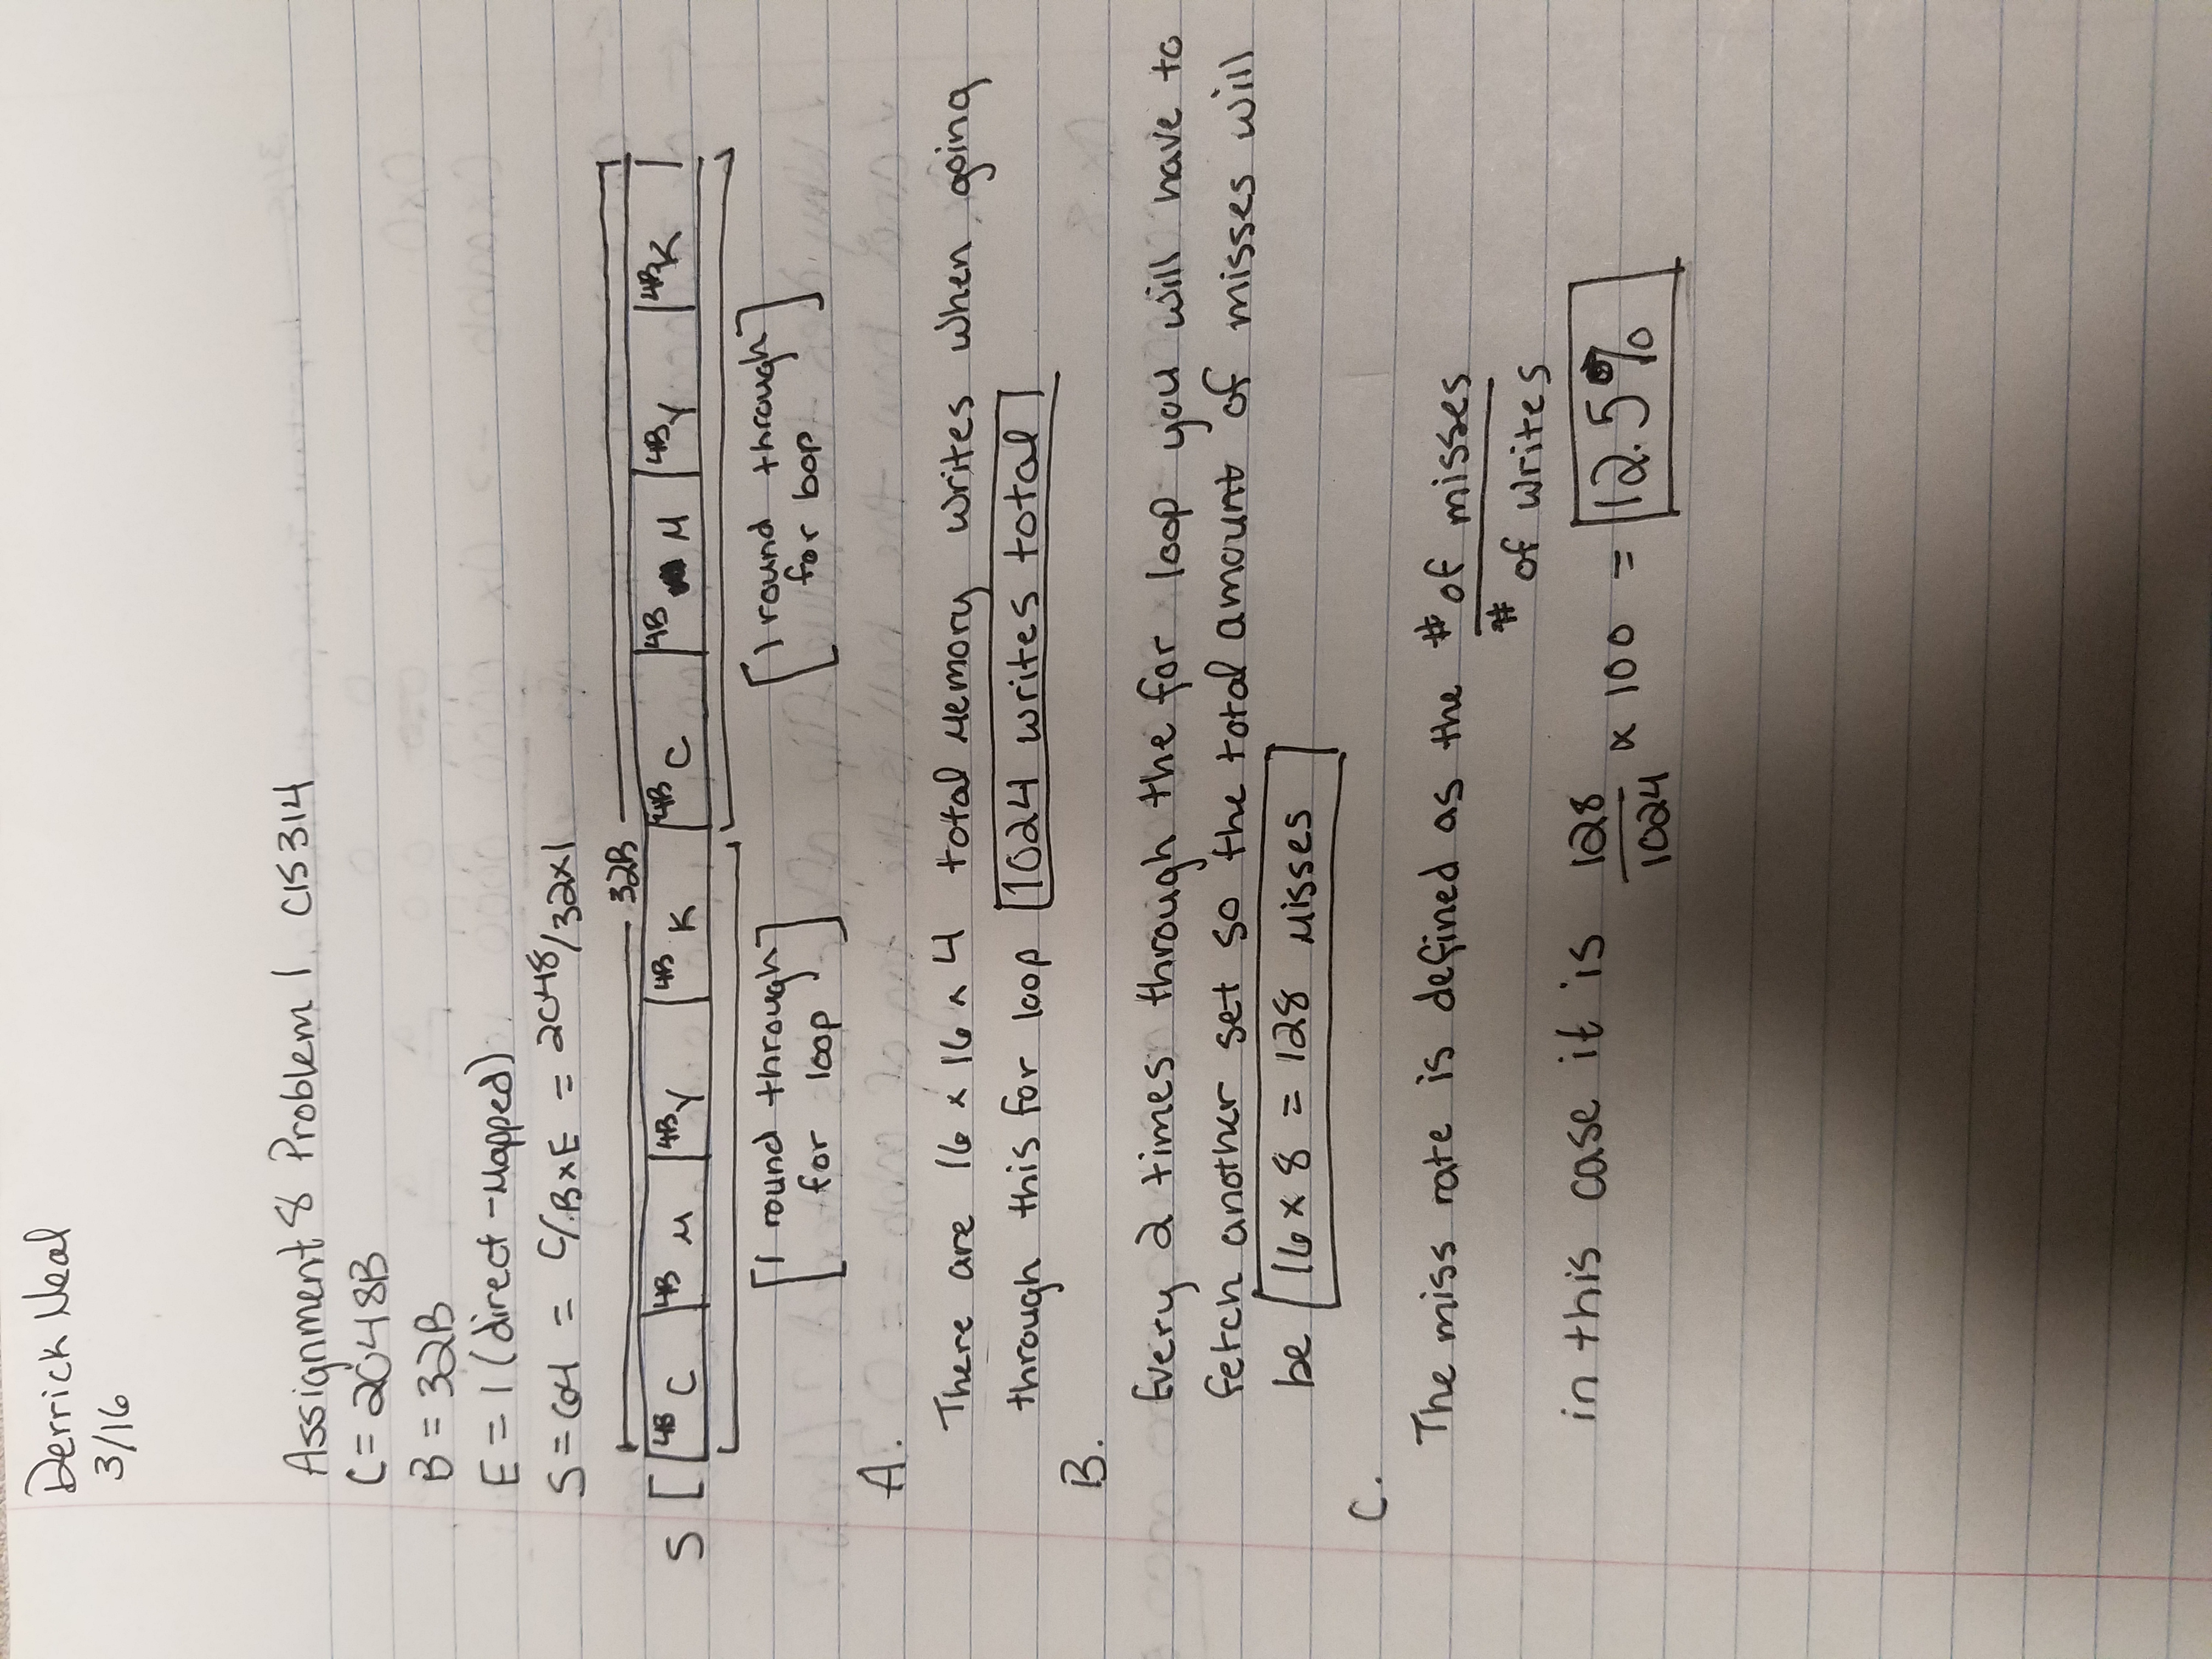 Derrick Neal
3/16
Assignment 8 Problem 1 CIS 314
C = 2048B
B = 32B
E = 1 (direct-mapped)
S = 64 = C/BxE = 2048/32x1
32B
S [ 4B C 4B M 4B Y 4B K 4B C 4B M 4B Y 4B K ]
[1 round through [1 round through
for loop] for loop]
A.
There are 16 x 16 x 4 total memory writes when going
through this for loop 1024 writes total
B.
Every 2 times through the for loop you will have to
fetch another set so the total amount of misses will
be 16 x 8 = 128 misses
C.
The miss rate is defined as the # of misses
# of writes
in this case it is 128/1024 x 100 = 12.5%